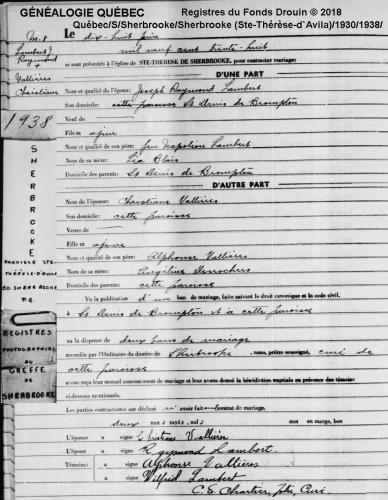 GÉNÉALOGIE QUÉBEC
Registres du Fonds Drouin © 2018
Québec/S/Sherbrooke/Sherbrooke (Ste-Thérèse-d`Avila)/1930/1938/
Le dix-huit juin
mil neuf cent trente-huit
Lambert J.
Raymond
+
Vallières
Christiane
se sont présentés à l'église de STE-THERESE DE SHERBROOKE, pour contracter mariage:
D'UNE PART
Nom et qualité de l'époux: Joseph Raymond Lambert
Son domicile: cette paroisse St Denis de Brompton
Veuf de
1938
Fils majeur
Nom et qualité de son père: feu Napoléon Lambert
Nom de sa mère: Léa Blais
Domicile des parents: St Denis de Brompton
D'AUTRE PART
Nom de l'épouse: Christiane Vallières
Son domicile: cette paroisse
Veuve de
Fille majeure
Nom et qualité de son père: Alphonse Vallières
Nom de sa mère: Desrochers
Domicile des parents: cette paroisse
SHERBROOKE
PAROISSE STE-
THÉRÈSE-D'AVILA
CO. SHERBROOKE
P.Q.
Vu la publication d'un ban de mariage, faite suivant le droit canonique et le code civil,
à St Denis de Brompton et à cette paroisse
REGISTRES
PHOTOGRAPHIÉS
AU
GREFFE
DE
SHERBROOKE
vu la dispense de deux bans de mariage
accordée par l'Ordinaire du diocèse de Sherbrooke, nous, prêtre soussigné, curé de
cette paroisse
avons reçu leur mutuel consentement de mariage et leur avons donné la bénédiction nuptiale en présence des témoins
ci-dessous mentionnés.
Les parties contractantes ont déclaré n'avoir fait contrat de mariage.
deux mots rayés, nuls mot en marge, bon
L'épouse a signé Christiane Vallières
L'époux a signé Raymond Lambert.
Témoins: a signé Alphonse Vallières
a signé Wilfrid Lambert
C. E. Chartier, ptre, Curé.